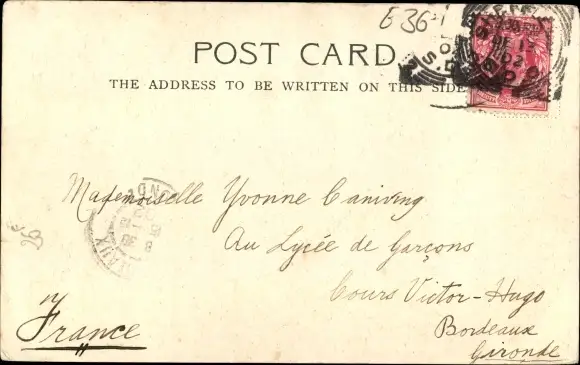 E 36-1
POST CARD.
THE ADDRESS TO BE WRITTEN ON THIS SIDE
Mademoiselle Yvonne Caniving
Au Lycée de Garçons
Cours Victor-Hugo
Bordeaux
Gironde
France